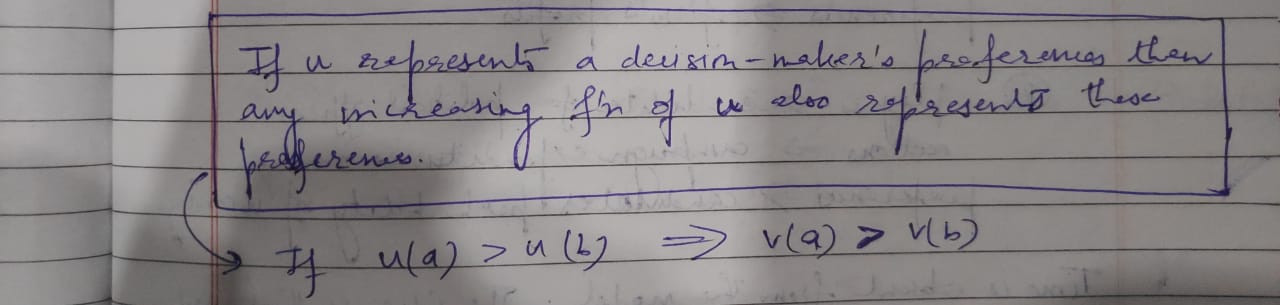 If u represents a decision-maker's preferences then
any increasing f'n of u also represents these
preferences.
If u(a) > u(b) ⟹ v(a) > v(b)